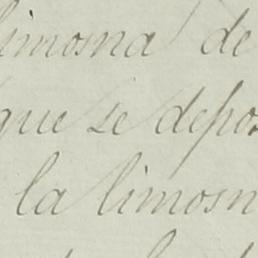 limosna de
que se depo
la limosn